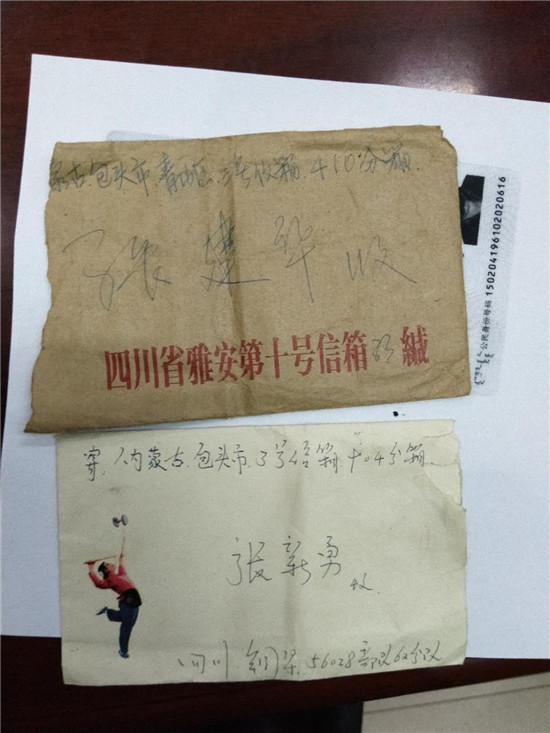 蒙古包头市青山区三号信箱410分箱
张建华收
四川省雅安第十号信箱 缄
公民身份号码 150204196102020616
寄 内蒙古包头市3号信箱十04分箱
张新勇
收
四川 铜梁 56028部队62分队